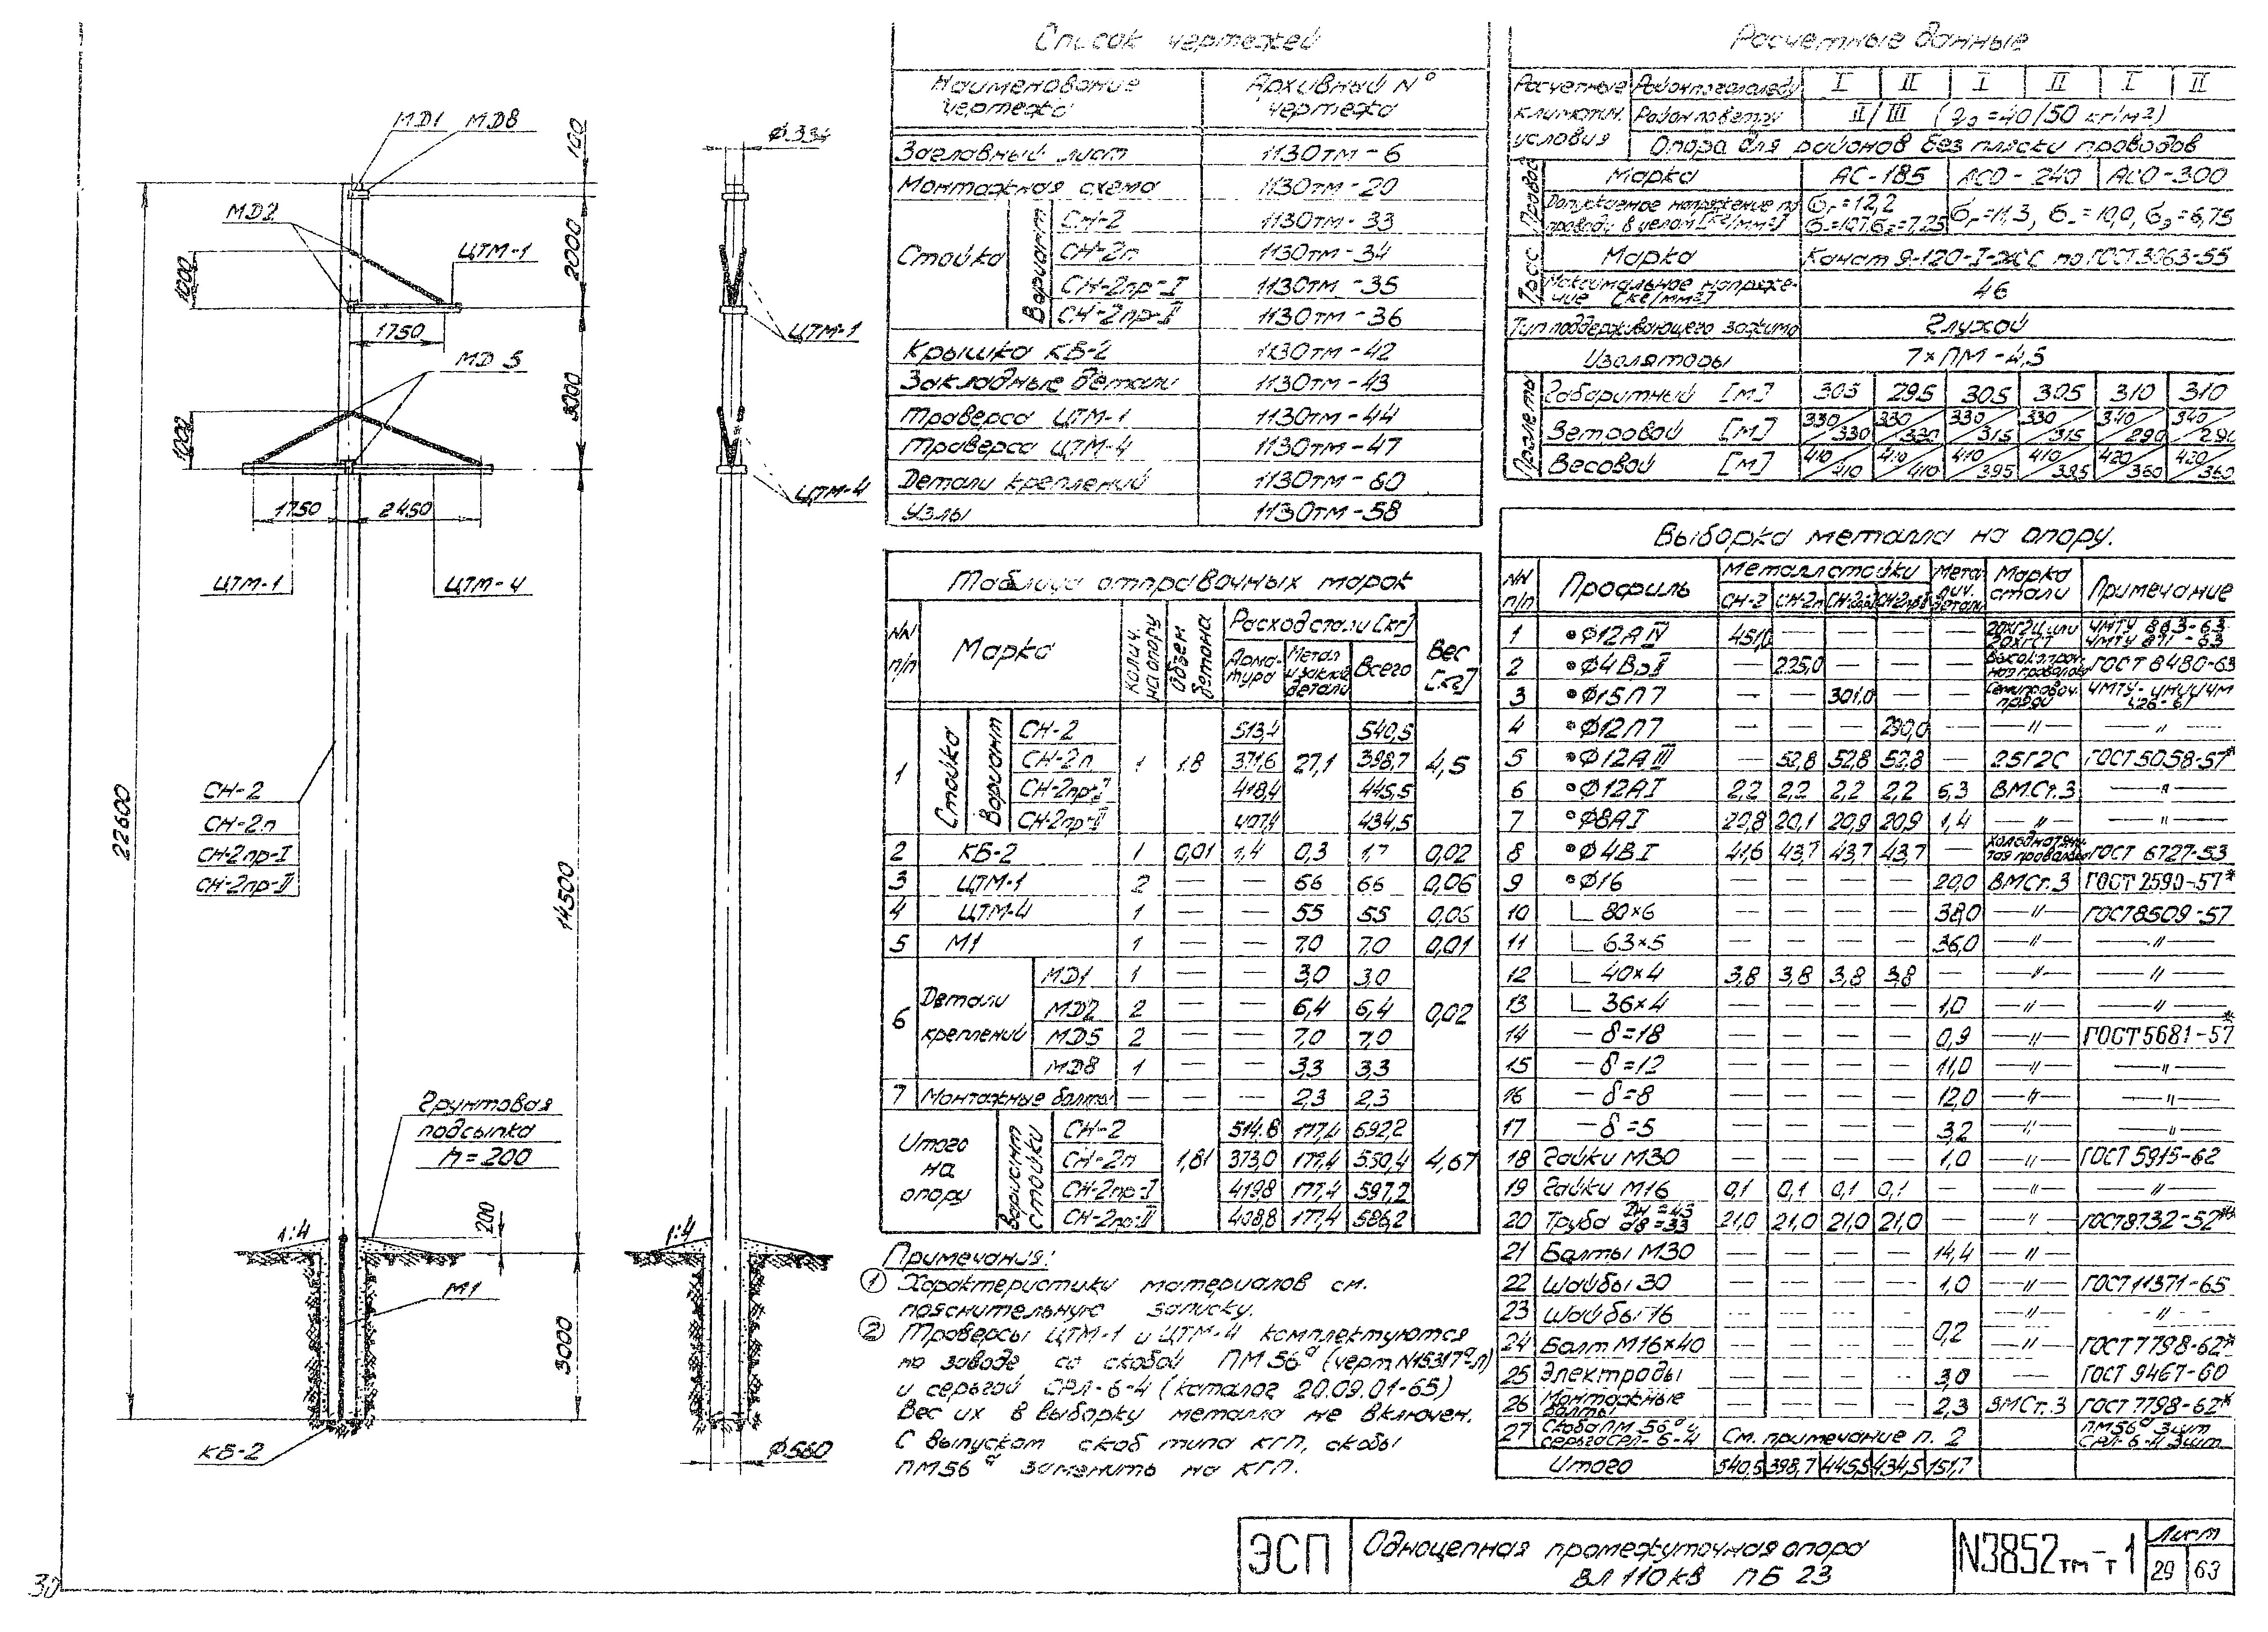 МД1 МД8
МД2
ЦТМ-1
1000
1750
МД5
1000
1750 2450
ЦТМ-1 ЦТМ-4
100
2000
3000
14500
3000
22600
СН-2
СН-2п
СН-2пр-I
СН-2пр-II
Грунтовая
подсыпка
h=200
200
1:4
М1
КБ-2
Ф334
ЦТМ-1
ЦТМ-4
1:4
Ф560
Список чертежей
Наименование чертежа Архивный N° чертежа
Заглавный лист 1130тм-6
Монтажная схема 1130тм-20
Стойка Вариант СН-2 1130тм-33
СН-2п 1130тм-34
СН-2пр-I 1130тм-35
СН-2пр-II 1130тм-36
Крышка КБ-2 1130тм-42
Закладные детали 1130тм-43
Траверса ЦТМ-1 1130тм-44
Траверса ЦТМ-4 1130тм-47
Детали креплений 1130тм-60
Узлы 1130тм-58
Таблица отправочных марок
NN п/п Марка Колич. на опору Объем бетона Расход стали [кг] Вес
Арматура Метал и заклад детали Всего
1 Стойка Вариант СН-2 1 1.8 513,4 27,1 540,5 4,5
СН-2п 371,6 398,7
СН-2пр-I 418,4 445,5
СН-2пр-II 407,4 434,5
2 КБ-2 1 0,01 1,4 0,3 1,7 0,02
3 ЦТМ-1 2 — — 66 66 0,06
4 ЦТМ-4 1 — — 55 55 0,06
5 М1 1 — — 7,0 7,0 0,01
6 Детали креплений МД1 1 — — 3,0 3,0 0,02
МД2 2 — — 6,4 6,4
МД5 2 — — 7,0 7,0
МД8 1 — — 3,3 3,3
7 Монтажные болты — — — 2,3 2,3
Итого на опору Вариант стойки СН-2 1,81 514.8 177,4 692,2 4,67
СН-2п 373,0 177,4 550,4
СН-2пр-I 419,8 177,4 597,2
СН-2пр-II 408,8 177,4 586,2
Примечания:
① Характеристики материалов см.
пояснительную записку.
② Траверсы ЦТМ-1 и ЦТМ-4 комплектуются
на заводе со скобой ПМ56ᵃ
и серьгой СРЛ-6-4 (каталог 20.09.01-65)
Вес их в выборку металла не включен.
С выпуском скоб типа КГП, скобы
ПМ56ᵃ заменить на КГП.
Расчетные данные
Расчетные климатич. условия Район по гололеду I II I II I II
Район по ветру II/III (q₀=40/50 кг/м²)
Опора для районов без пляски проводов
Провод Марка АС-185 АСО-240 АСО-300
Допускаемое напряжение по проводу в целом [кг/мм²] σг=12,2 σ-=10,7 σэ=7,25 σг=11,3, σ-=10,0, σэ=6,75
Трос Марка Канат 9-120-I-ЖС по ГОСТ3063-55
Максимальное напряжение [кг/мм²] 46
Тип поддерживающего зажима Глухой
Изоляторы 7×ПМ-4,5
Пролеты Габаритный [м] 305 295 305 305 310 310
Ветровой [м] 330/330 330/330 330/315 330/315 340/290 340/290
Весовой [м] 410/410 410/410 410/395 410/395 420/360 420/360
Выборка металла на опору.
NN п/п Профиль Металл стойки Метал лич. детали Марка стали Примечание
СН-2 СН-2п СН-2пр-I СН-2пр-II
1 •Ф12АIV 451,0 — — — — 20ХГ2Ц или 20ХГСТ ЧМТУ 863-63 ЧМТУ 871-63
2 •Ф4ВрII — 225,0 — — — Высокопрочная проволока ГОСТ 8480-63
3 •Ф15П7 — — 301,0 — —
4 •Ф12П7 — — — 290,0 — —"— "
5 •Ф12АIII — 52,8 52,8 52,8 — 25Г2С ГОСТ5058-57*
6 •Ф12АI 2,2 2,2 2,2 2,2 6,3 ВМСт.3 —"—
7 •Ф8АI 20,8 20,1 20,9 20,9 1,4 —"— —"—
8 •Ф4ВI 41,6 43,7 43,7 43,7 — Холоднотянутая проволока ГОСТ 6727-53
9 •Ф16 — — — — 20,0 ВМСт.3 ГОСТ 2590-57*
10 ∟80×6 — — — — 38,0 —"— ГОСТ8509-57
11 ∟63×5 — — — — 36,0 —"— —"—
12 ∟40×4 3,8 3,8 3,8 3,8 — —"— —"—
13 ∟36×4 — — — — 1,0 —"— —"—
14 —δ=18 — — — — 0,9 —"— ГОСТ5681-57*
15 —δ=12 — — — — 11,0 —"— —"—
16 —δ=8 — — — — 12,0 —"— —"—
17 —δ=5 — — — — 3,2 —"— —"—
18 Гайки М30 — — — — 1,0 —"— ГОСТ 5915-62
19 Гайки М16 0,1 0,1 0,1 0,1 — —"— —"—
20 Труба Дн=43 dв=33 21,0 21,0 21,0 21,0 — —"— ГОСТ8732-52**
21 Болты М30 — — — — 14,4 —"—
22 Шайбы 30 — — — — 1,0 —"— ГОСТ11371-65
23 Шайбы 16 — — — — 0,2 —"— —"—
24 Болт М16×40 — — — — —"— ГОСТ7798-62*
25 Электроды — — — — 3,0 — ГОСТ 9467-60
26 Монтажные болты — — — — 2,3 ВМСт.3 ГОСТ7798-62*
27 Скоба ПМ 56ᵃ и серьга СРЛ-6-4 См. примечание п. 2 ПМ56ᵃ 3шт СРЛ-6-4 3шт
Итого 540,5 398,7 445,5 434,5 151,7
ЭСП Одноцепная промежуточная опора
ВЛ 110кВ ПБ 23
N3852тм-т1
Лист
29 63
30